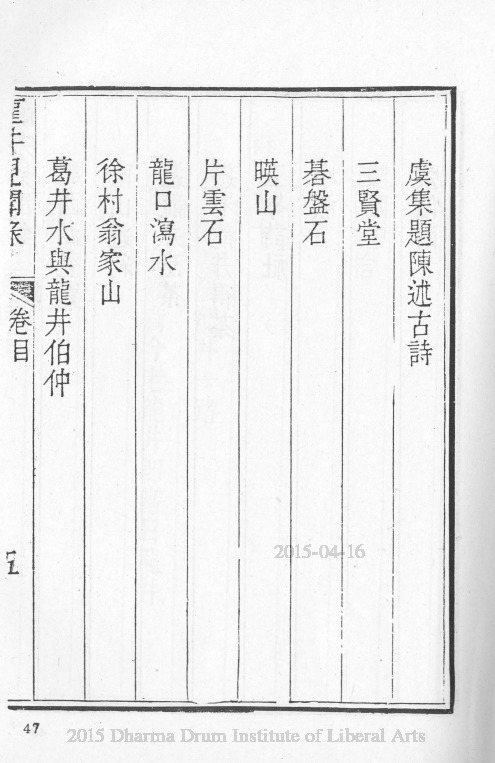 虞集題陳述古詩
三賢堂
碁盤石
暎山
片雲石
龍口瀉水
徐村翁家山
葛井水與龍井伯仲
龍井見聞錄
卷目
五
2015-04-16
47
2015 Dharma Drum Institute of Liberal Arts